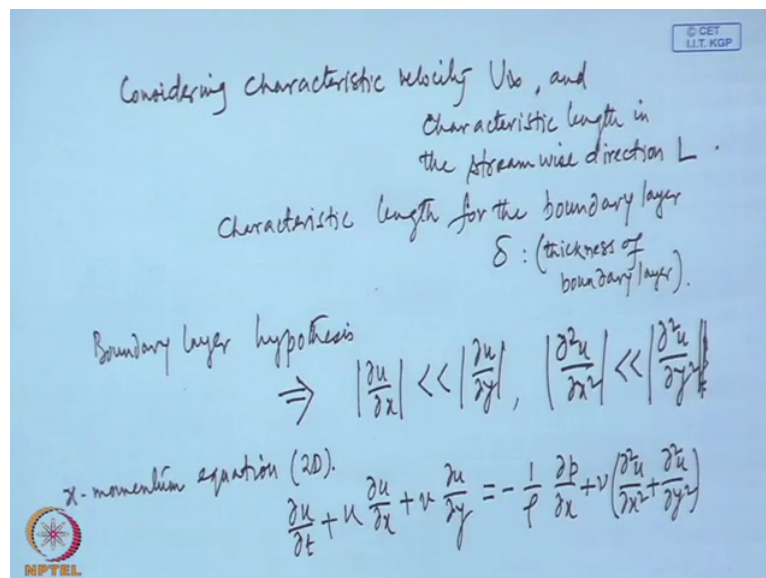 © CET
I.I.T. KGP
Considering characteristic velocity U∞, and
characteristic length in
the streamwise direction L.
Characteristic length for the boundary layer
δ : (thickness of
boundary layer).
Boundary layer hypothesis
⇒ |∂u/∂x| << |∂u/∂y|, |∂²u/∂x²| << |∂²u/∂y²|
x-momentum equation (2D).
∂u/∂t + u ∂u/∂x + v ∂u/∂y = -1/ρ ∂p/∂x + ν(∂²u/∂x² + ∂²u/∂y²)
NPTEL